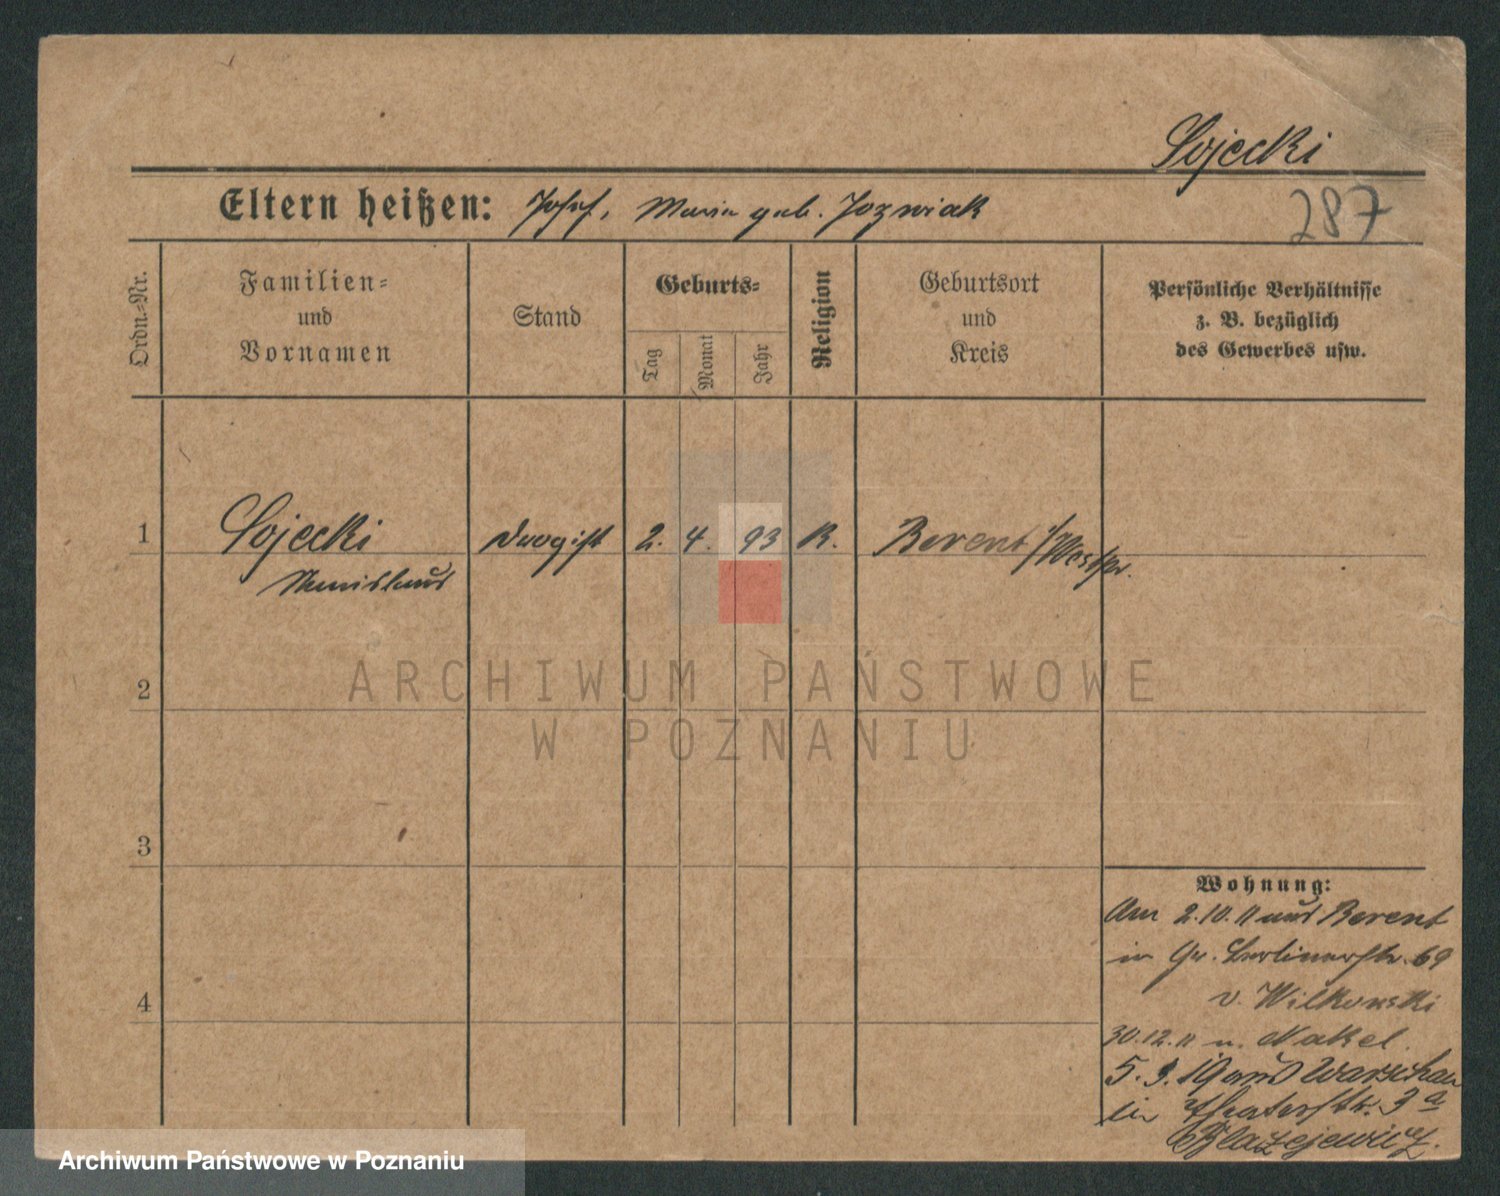 Sojecki
Eltern heißen: Josef, Maria geb. Jozwiak
287
Ordn.-Nr.
Familien-
und
Vornamen
Stand
Geburts-
Tag
Monat
Jahr
Religion
Geburtsort
und
Kreis
Persönliche Verhältnisse
z. B. bezüglich
des Gewerbes usw.
1
Sojecki
Stanislaus
Drogist
2. 4. 93
K.
Berent /Westpr.
2
ARCHIWUM PAŃSTWOWE
W POZNANIU
3
4
Wohnung:
Am 2.10.11 aus Berent
in Gr. Berlinerstr. 69
v. Wilkonski
30.12.11 n. Nakel.
5. 9. 19 aus Warschau
in Theaterstr. 3 a
Blazejewicz.
Archiwum Państwowe w Poznaniu